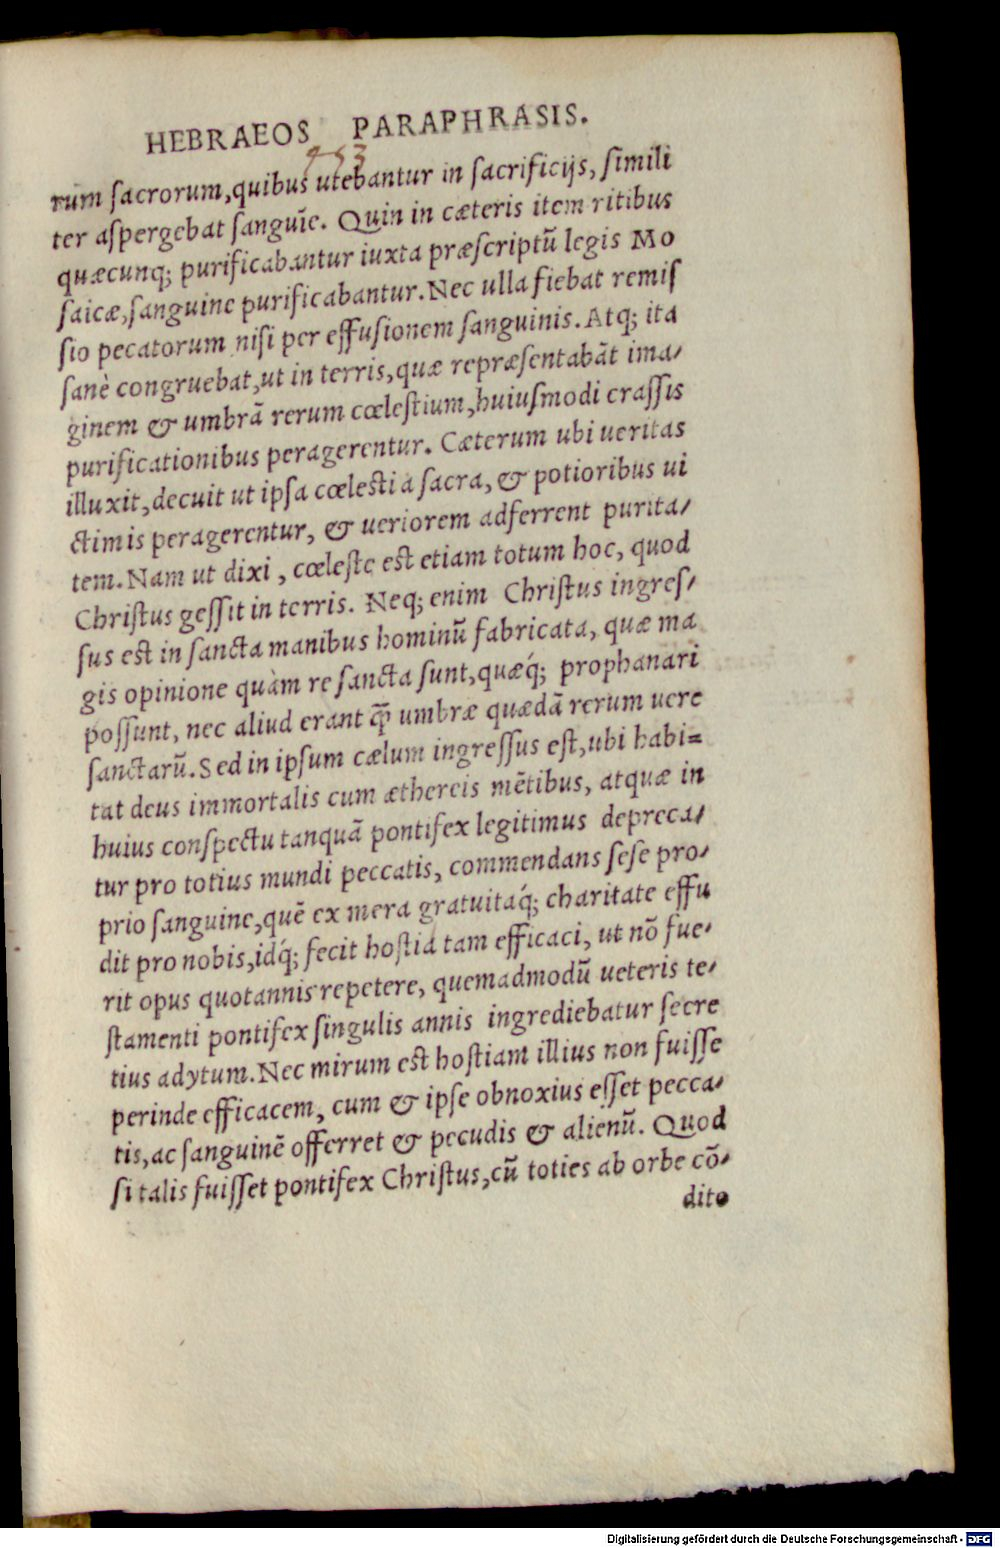 HEBRAEOS PARAPHRASIS.
453
rum ſacrorum,quibus utebantur in ſacrificijs, ſimili
ter aſpergebat ſanguĩe. Quin in cæteris item ritibus
quæcunq; purificabantur iuxta præſcriptũ legis Mo
ſaicæ,ſanguine purificabantur.Nec ulla fiebat remiſ
ſio pecatorum niſi per effuſionem ſanguinis.Atq; ita
ſanè congruebat,ut in terris,quæ repræſentabãt ima/
ginem & umbrã rerum cœleſtium,huiuſmodi craſſis
purificationibus peragerentur. Cæterum ubi ueritas
illuxit,decuit ut ipſa cœleſtia ſacra, & potioribus ui
ctimis peragerentur, & ueriorem adferrent purita/
tem.Nam ut dixi , cœleſte eſt etiam totum hoc, quod
Chriſtus geſſit in terris. Neq; enim Chriſtus ingreſ/
ſus eſt in ſancta manibus hominũ fabricata, quæ ma
gis opinione quàm re ſancta ſunt,quæq́; prophanari
poſſunt, nec aliud erant q̃ꝫ umbræ quædã rerum uere
ſanctarũ.Sed in ipſum cælum ingreſſus eſt,ubi habi=
tat deus immortalis cum æthereis mẽtibus, atquæ in
huius conſpectu tanquã pontifex legitimus depreca/
tur pro totius mundi peccatis, commendans ſeſe pro/
prio ſanguine,quẽ ex mera gratuitaq́; charitate effu
dit pro nobis,idq́; fecit hoſtia tam efficaci, ut nõ fue/
rit opus quotannis repetere, quemadmodũ ueteris te/
ſtamenti pontifex ſingulis annis ingrediebatur ſecre
tius adytum.Nec mirum eſt hoſtiam illius non fuiſſe
perinde efficacem, cum & ipſe obnoxius eſſet pecca/
tis,ac ſanguinẽ offerret & pecudis & alienũ. Quod
ſi talis fuiſſet pontifex Chriſtus,cũ toties ab orbe cõ/
dito
Digitalisierung gefördert durch die Deutsche Forschungsgemeinschaft - DFG